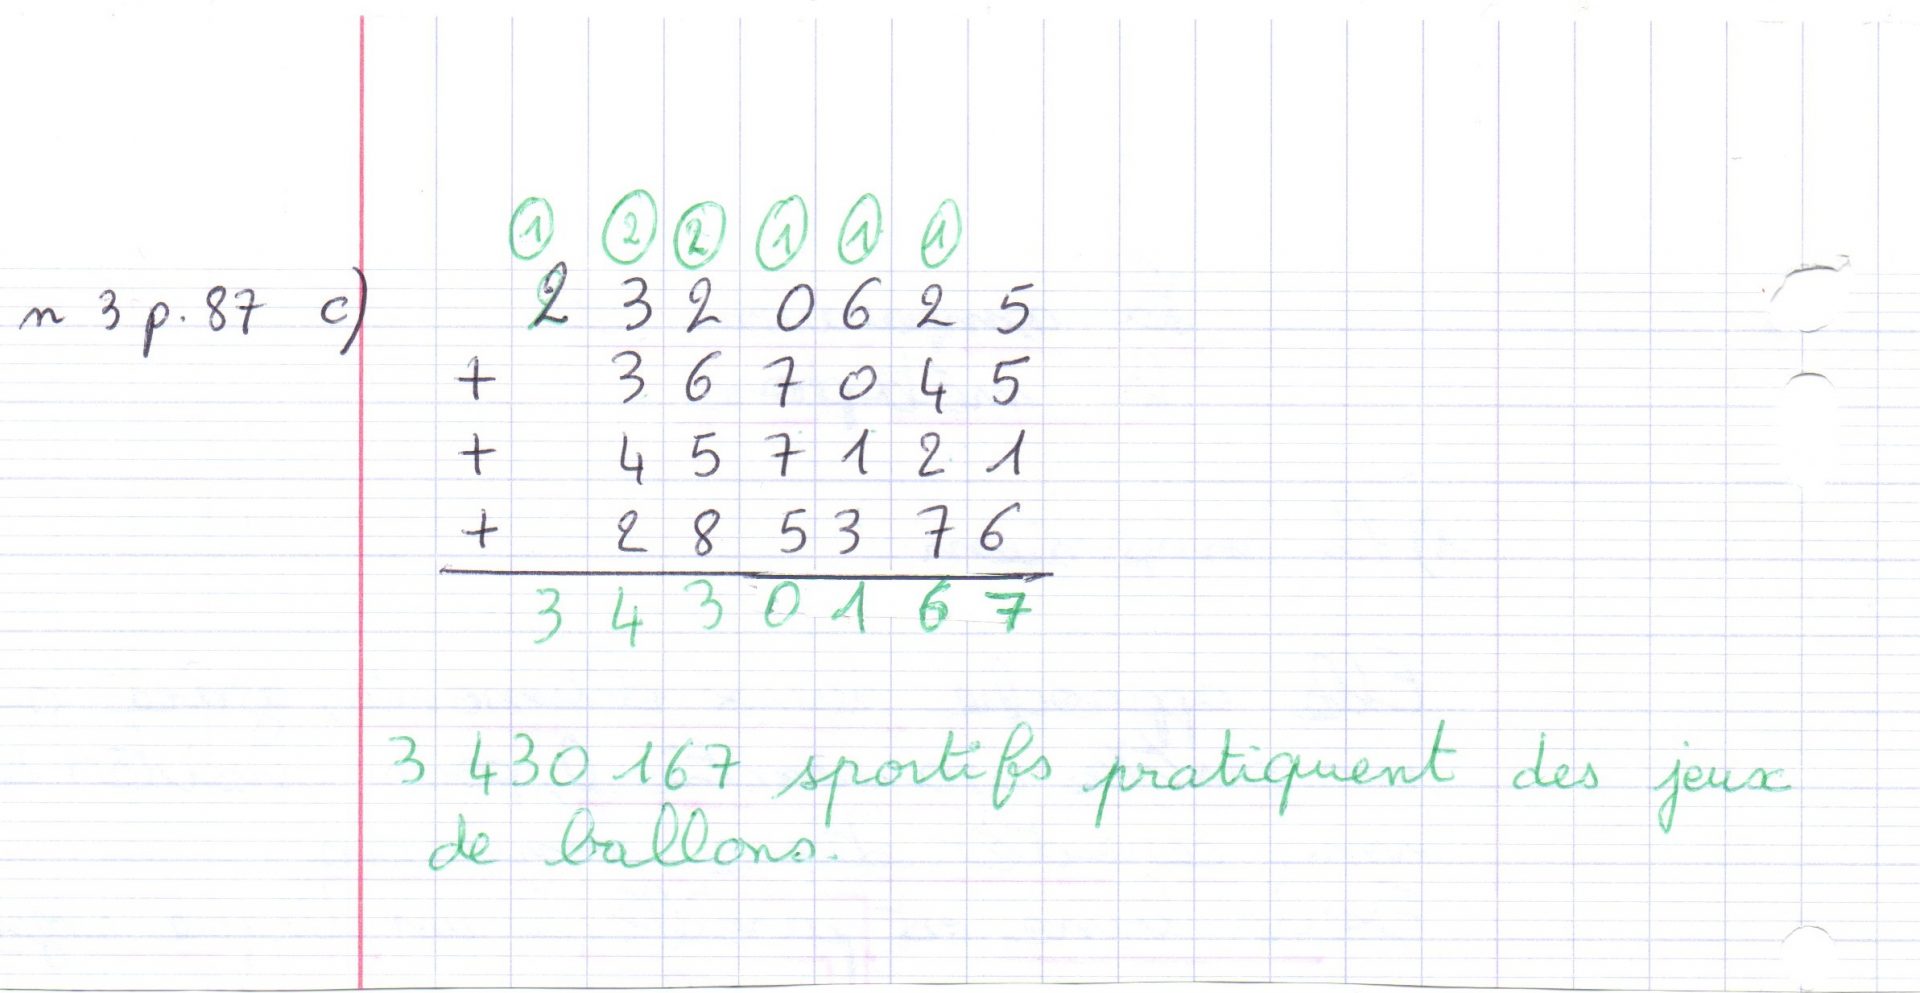 1 2 2 1 1 1
n 3 p. 87 c) 2 3 2 0 6 2 5
+ 3 6 7 0 4 5
+ 4 5 7 1 2 1
+ 2 8 5 3 7 6
3 4 3 0 1 6 7
3 430 167 sportifs pratiquent des jeux
de ballons.